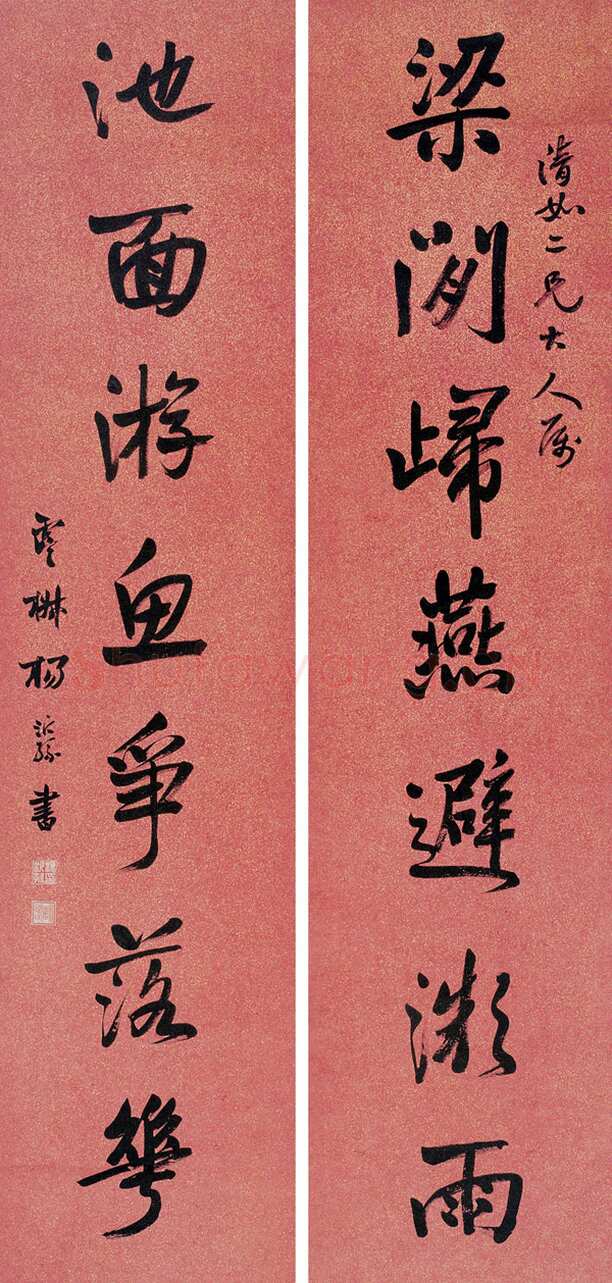 清如二兄大人屬
梁閒歸燕避微雨
池面游魚爭落華
楊沂孫書